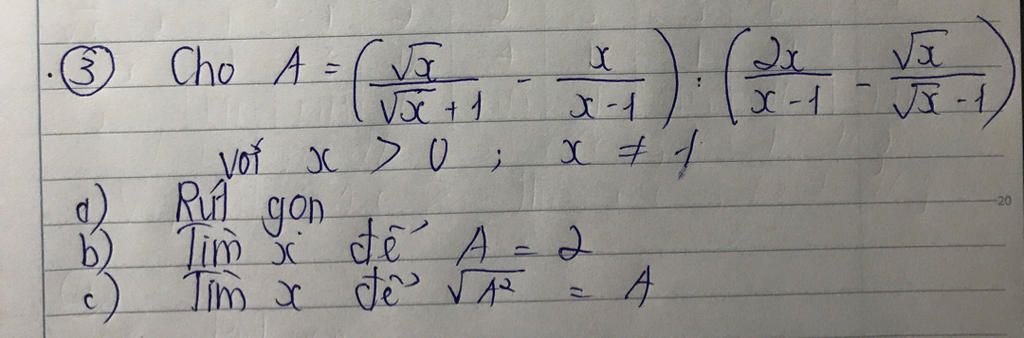 ③ Cho A = (√x/(√x + 1) - x/(x - 1)) : (2x/(x - 1) - √x/(√x - 1))
với x > 0 ; x ≠ 1
a) Rút gọn
b) Tìm x để A = 2
c) Tìm x để √A² = A
20